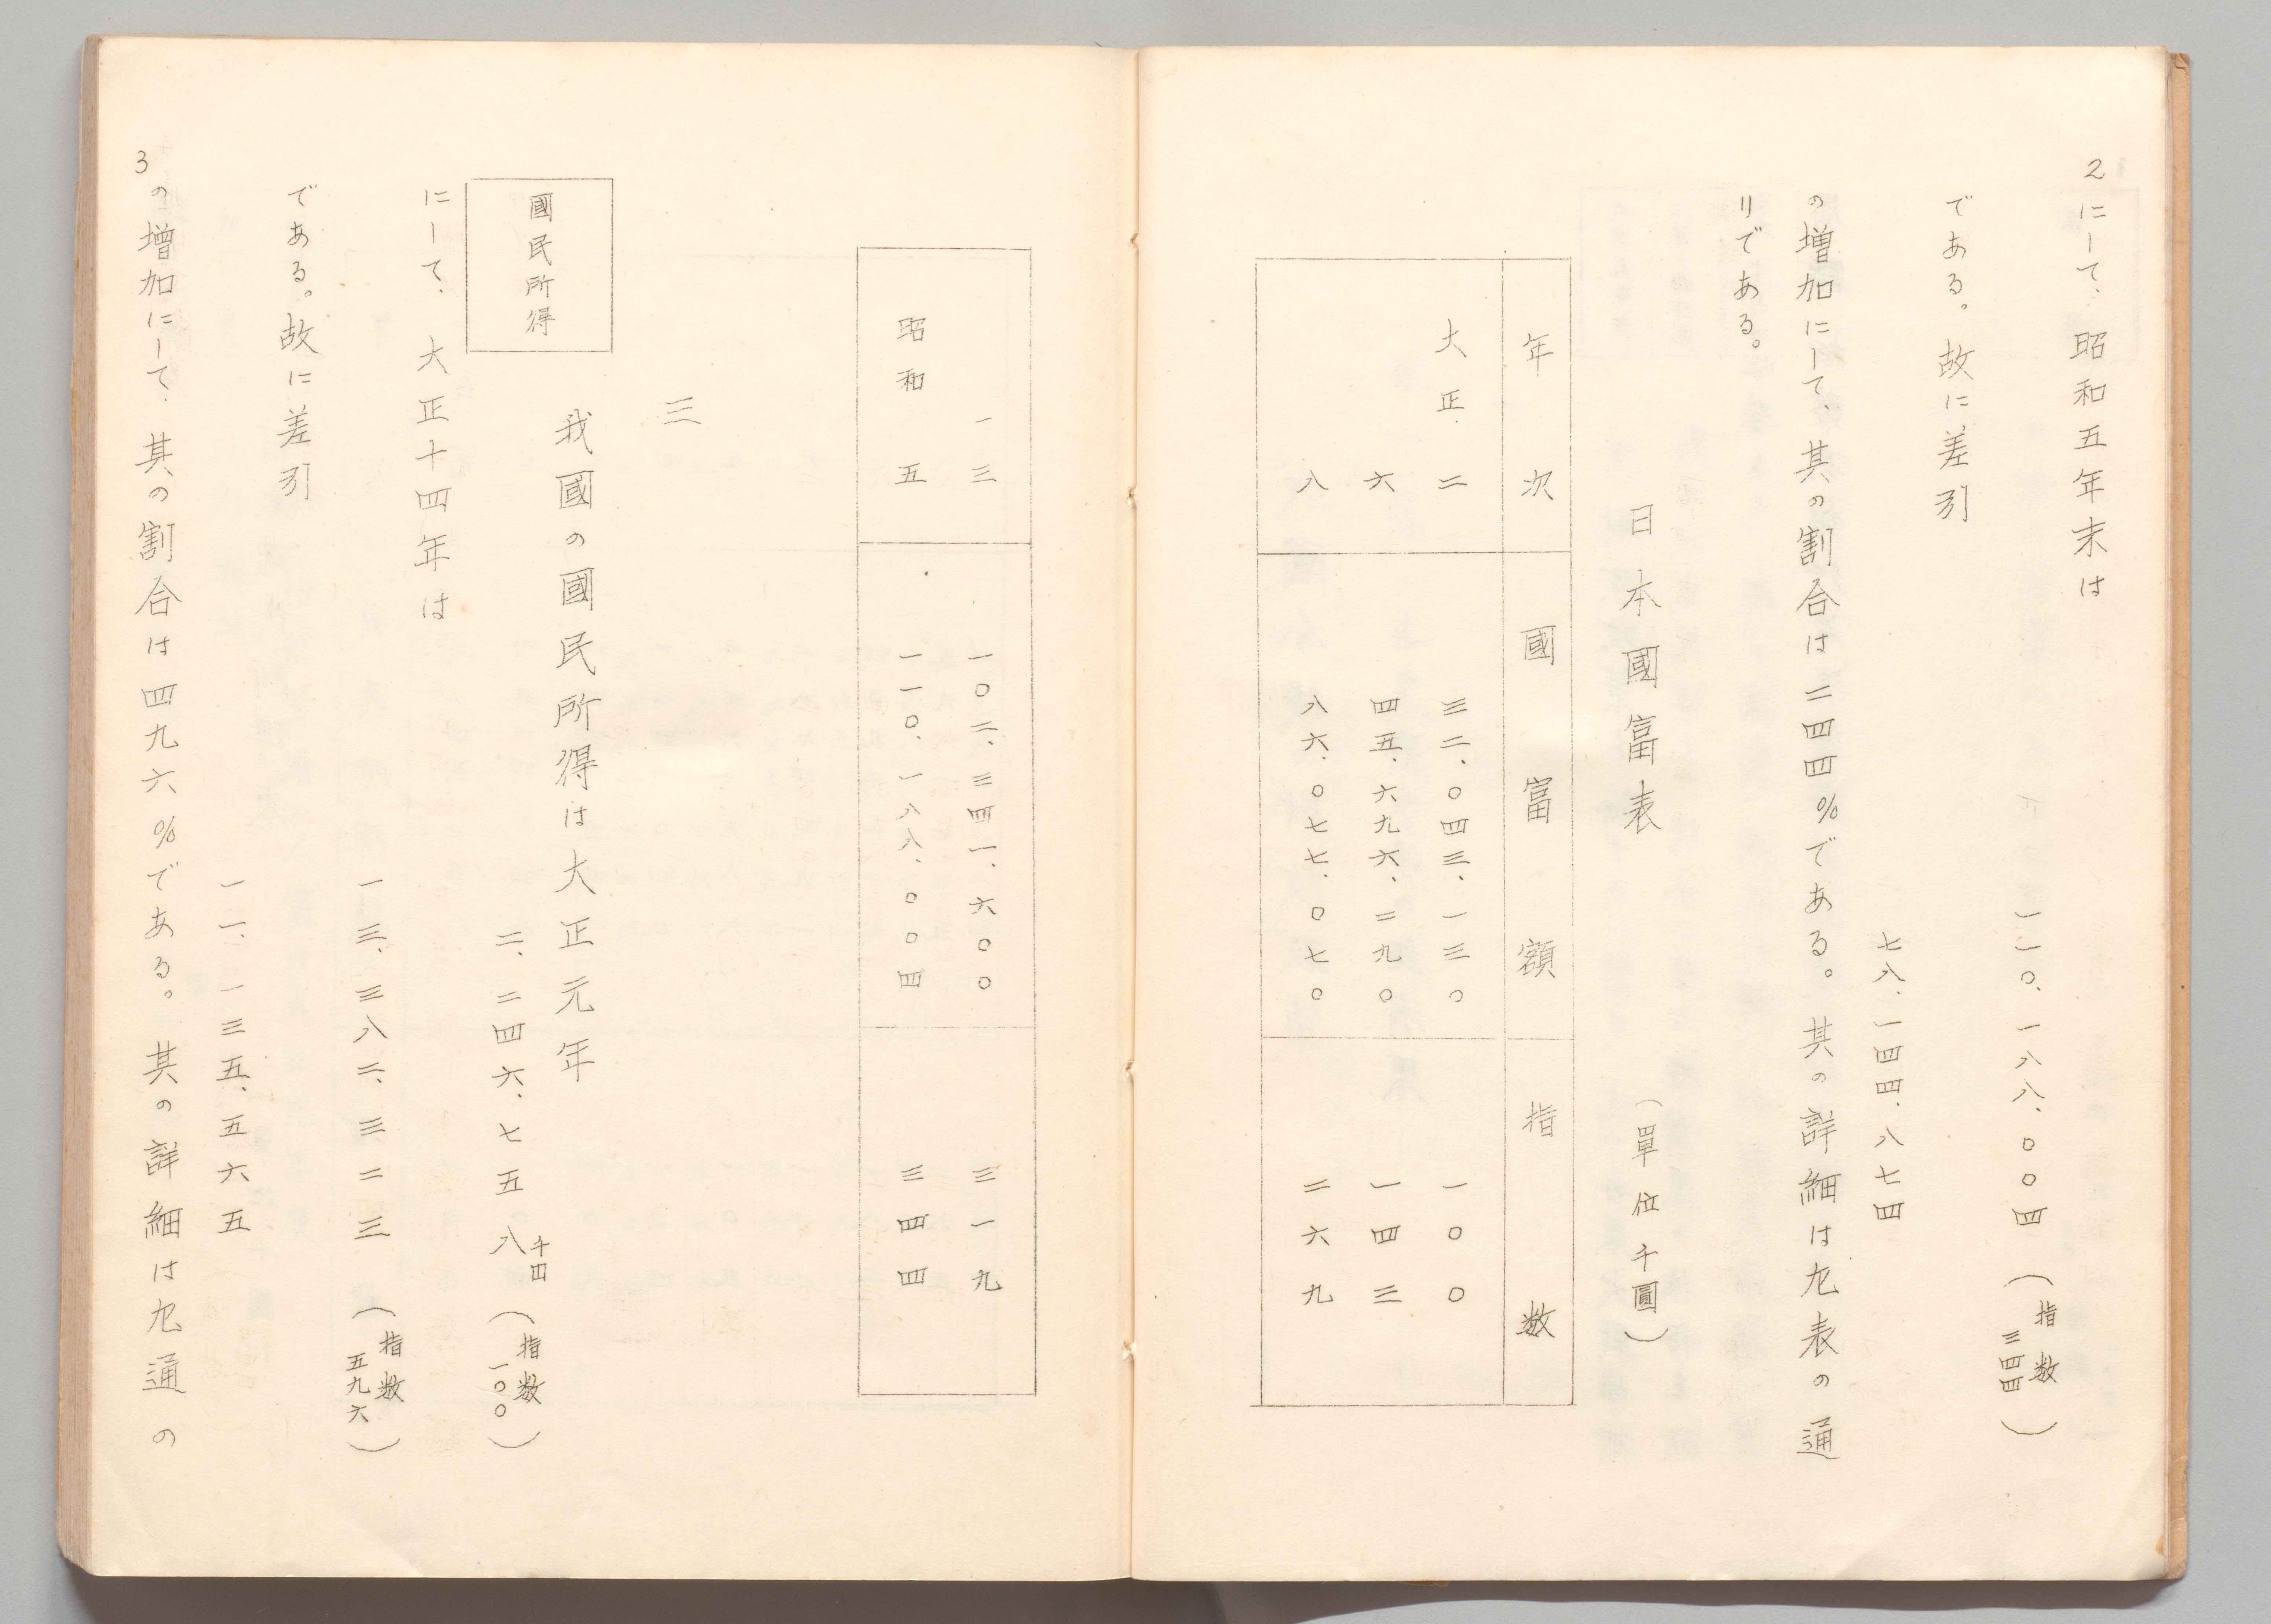 2
にして、昭和五年末は
一一〇、一八八、〇〇四（指数三四四）
である。故に差引
七八、一四四、八七四
の増加にして、其の割合は二四四%である。其の詳細は左表の通
りである。
日本國富表（單位千圓）
年次　國富額　指数
大正二　三二、〇四三、一三〇　一〇〇
六　四五、六九六、二九〇　一四三
八　八六、〇七七、〇七〇　二六九
一三　一〇二、三四一、六〇〇　三一九
昭和五　一一〇、一八八、〇〇四　三四四
三
國民所得
我國の國民所得は大正元年
二、二四六、七五八千円（指数一〇〇）
にして、大正十四年は
一三、三八二、三二三（指数五九六）
である。故に差引
一一、一三五、五六五
の増加にして、其の割合は四九六%である。其の詳細は左通の
3